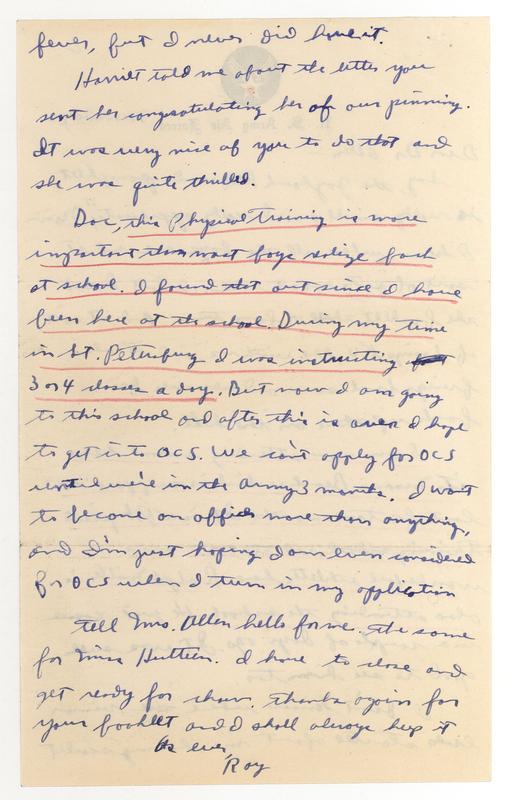 fever, but I never did have it.
Harriet told me about the letter you
sent her congratulating her of our pinning.
It was very nice of you to do that and
she was quite thrilled.
Doc, this Physical Training is more
important than most boys realize back
at school. I found that out since I have
been here at this school. During my time
in St. Petersburg I was instructing
3 or 4 classes a day. But now I am going
to this school and after this is over I hope
to get into OCS. We can't apply for OCS
until we're in the Army 3 months. I want
to become an officer more than anything,
and I'm just hoping I am even considered
for OCS when I turn in my application
tell Mrs. Allen hello for me. The same
for Miss I have to close and
get ready for chow. thanks again for
your booklet and I shall always keep it
As ever,
Roy